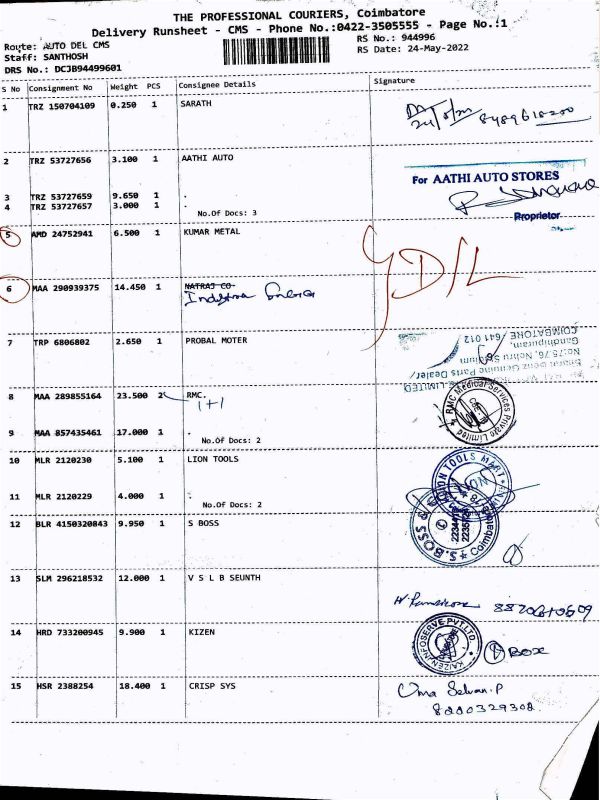 THE PROFESSIONAL COURIERS, Coimbatore
Delivery Runsheet - CMS - Phone No.:0422-3505555 - Page No.:1
Route: AUTO DEL CMS
RS No.: 944996
Staff: SANTHOSH
RS Date: 24-May-2022
DRS No.: DCJB94499601
S No Consignment No Weight PCS Consignee Details Signature
1 TRZ 150704109 0.250 1 SARATH
2 TRZ 53727656 3.100 1 AATHI AUTO
For AATHI AUTO STORES
3 TRZ 53727659 9.650 1 .
4 TRZ 53727657 3.000 1 .
No.Of Docs: 3
Proprietor
5 AMD 24752941 6.500 1 KUMAR METAL
6 MAA 290939375 14.450 1 NATRAJ CO
7 TRP 6806802 2.650 1 PROBAL MOTER
COIMBATORE / 641 012
Gandhipuram,
No:75,76, Nehru Stadium
Genuine Parts Dealer
LIMITED
8 MAA 289855164 23.500 2 RMC.
1+1
RMC Medical Services Private Limited
9 MAA 857435461 17.000 1 .
No.Of Docs: 2
10 MLR 2120230 5.100 1 LION TOOLS
LION TOOLS MART
11 MLR 2120229 4.000 1 .
No.Of Docs: 2
12 BLR 4150320843 9.950 1 S BOSS
S.BOSS
Coimbatore
13 SLM 296218532 12.000 1 V S L B SEUNTH
14 HRD 733200945 9.900 1 KIZEN
KAIZEN INFOSERVE PVT.LTD.
1 BOX
15 HSR 2388254 18.400 1 CRISP SYS
Uma Selvan.P
8220329308